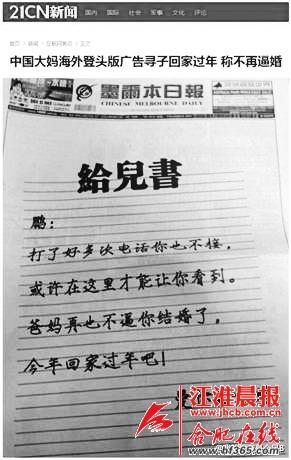 21CN新闻
国内 国际 社会 军事 文化 评论
中国大妈海外登头版广告寻子回家过年 称不再逼婚
墨爾本日報
CHINESE MELBOURNE DAILY
給兒書
鹏:
打了好多次电话你也不接,
或许在这里才能让你看到。
爸妈再也不逼你结婚了,
今年回家过年吧!
江淮晨报
www.jhcb.com.cn
合肥在线
www.hf365.com